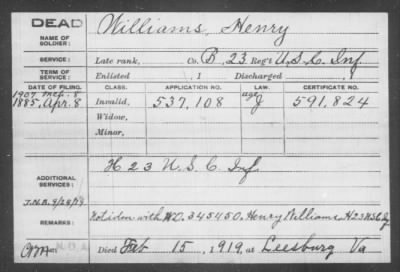 DEAD Williams, Henry
NAME OF SOLDIER:
SERVICE: Late rank, Co. B, 23 Reg't U.S.C. Inf
TERM OF SERVICE: Enlisted , 1 Discharged , 1
DATE OF FILING. CLASS. APPLICATION NO. LAW. CERTIFICATE NO.
1907 8 age
1885, Apr. 8 Invalid, 537,108 J 591,824
Widow,
Minor,
ADDITIONAL SERVICES: H 23 U.S.C. Inf
J.N.B. 9/28/
REMARKS: with WO. 345450. Henry Williams H 23 USC Inf
Died Feb 15, 1919, at Leesburg Va